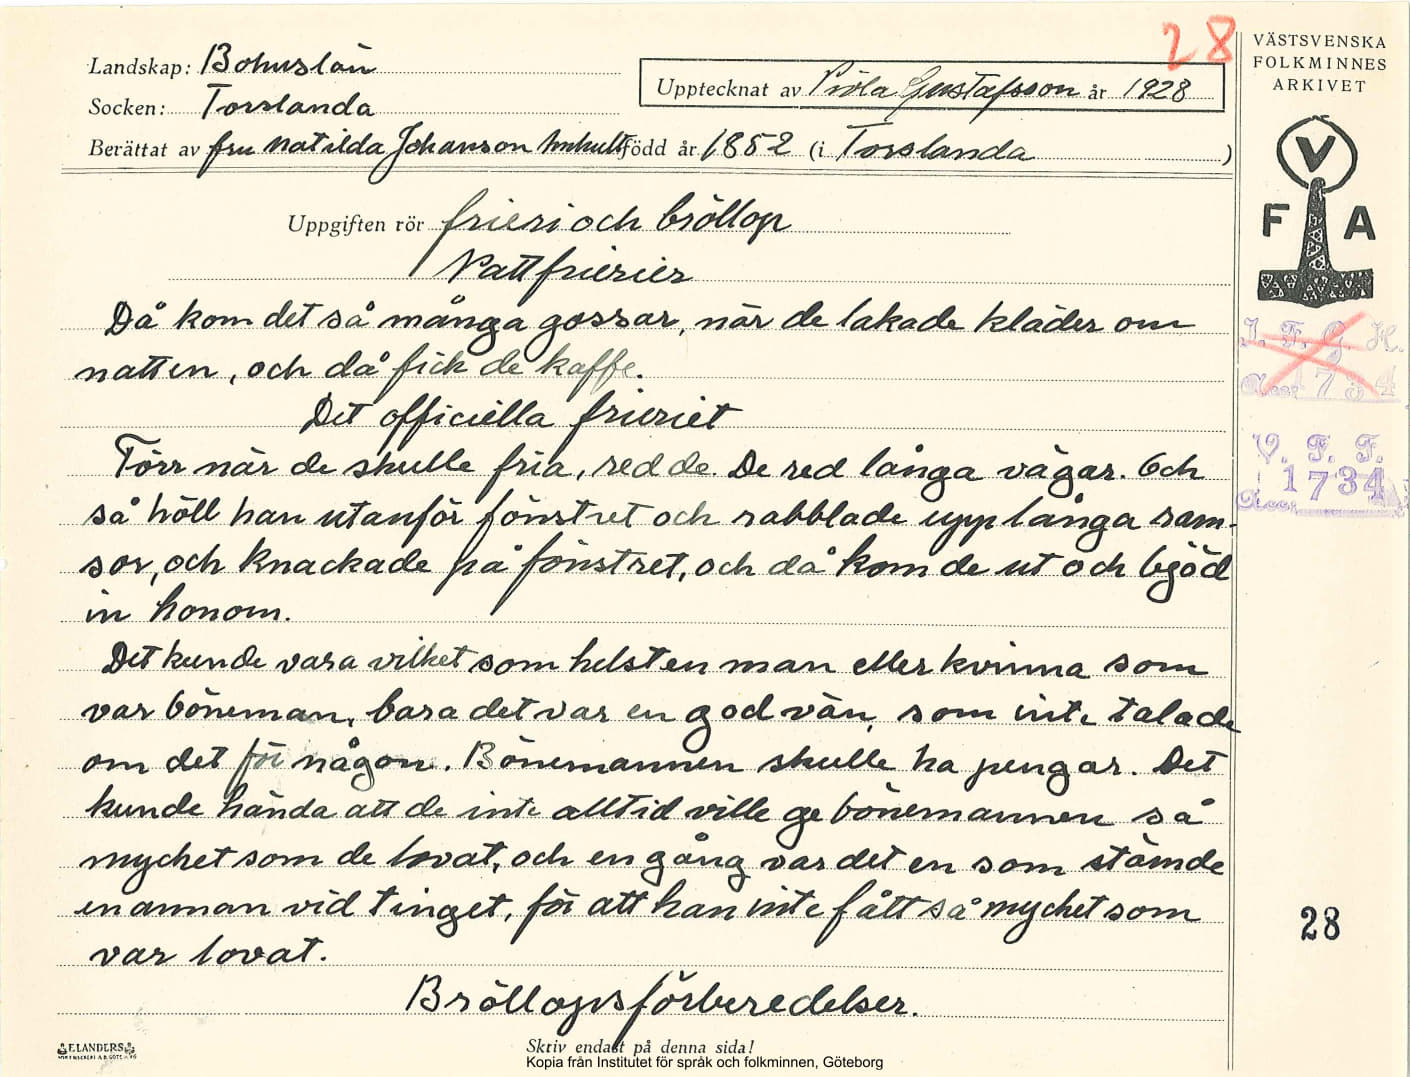 28
VÄSTSVENSKA
FOLKMINNES
ARKIVET
V
F A
Landskap: Bohuslän
Socken: Torslanda
Upptecknat av Gustafsson år 1928
Berättat av fru Matilda Johanson född år 1852 (i Torslanda)
Uppgiften rör frieri och bröllop
Nattfrierier
Då kom det så många gossar, när de lakade kläder om
natten, och då fick de kaffe.
Det officiella frieriet
Förr när de skulle fria, red de. De red långa vägar. Och
så höll han utanför fönstret och rabblade upp långa ram-
sor, och knackade på fönstret, och då kom de ut och bjöd
in honom.
Det kunde vara vilket som helst en man eller kvinna som
var böneman, bara det var en god vän, som inte talade
om det för någon. Bönemannen skulle ha pengar. Det
kunde hända att de inte alltid ville ge bönemannen så
mychet som de lovat, och en gång var det en som stämde
en annan vid tinget, för att han inte fått så mychet som
var lovat.
Bröllopsförberedelser.
I. F. G. H.
Acc. 1734
V. F. F.
Acc. 1734
28
ELANDERS
Skriv endast på denna sida!
Kopia från Institutet för språk och folkminnen, Göteborg